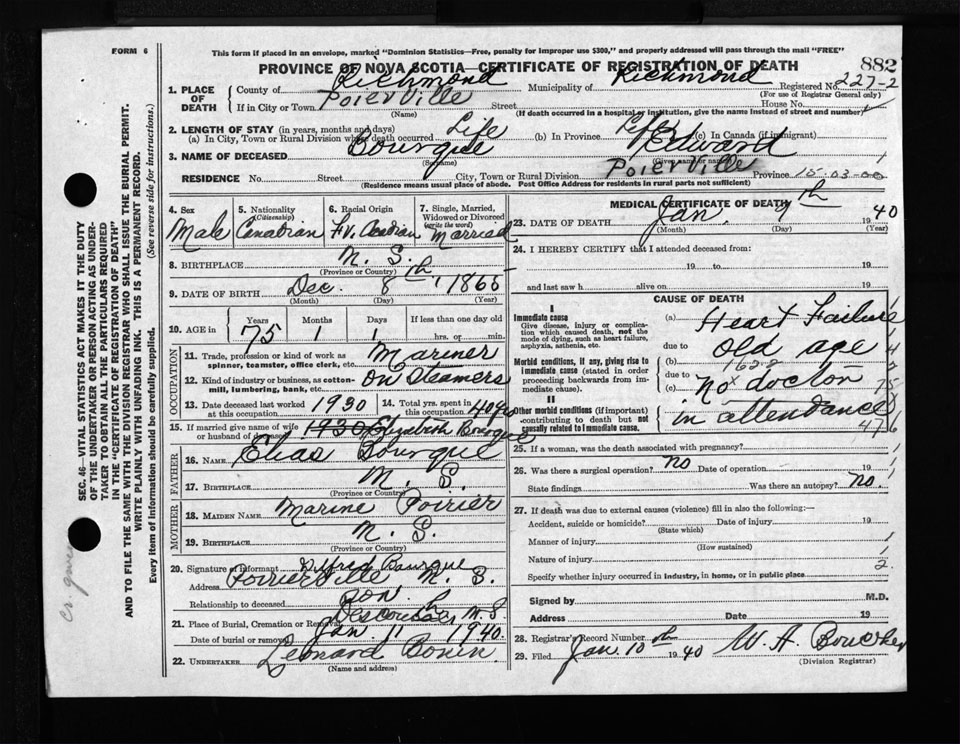 FORM 6
This form if placed in an envelope, marked "Dominion Statistics—Free, penalty for improper use $300," and properly addressed will pass through the mail "FREE"
PROVINCE OF NOVA SCOTIA—CERTIFICATE OF REGISTRATION OF DEATH
882
1. PLACE OF DEATH
County of Richmond Municipality of Richmond Registered No. 227-2
(For use of Registrar General only)
If in City or Town Poierville Street House No.
(Name) (If death occurred in a hospital or institution, give the name instead of street and number)
2. LENGTH OF STAY (in years, months and days)
(a) In City, Town or Rural Division where death occurred Life (b) In Province Life (c) In Canada (if immigrant)
3. NAME OF DECEASED Bourque Edward
(Surname) (Given name or names)
RESIDENCE No. Street City, Town or Rural Division Poierville Province 15-03-00
(Residence means usual place of abode. Post Office Address for residents in rural parts not sufficient)
4. Sex Male
5. Nationality (Citizenship) Canadian
6. Racial Origin Fr. Acadian
7. Single, Married, Widowed or Divorced (write the word) Married
8. BIRTHPLACE N. S.
(Province or Country)
9. DATE OF BIRTH Dec. 8th, 1865
(Month) (Day) (Year)
10. AGE in Years Months Days If less than one day old
75 1 1 hrs. or min.
OCCUPATION
11. Trade, profession or kind of work as spinner, teamster, office clerk, etc. Mariner
12. Kind of industry or business, as cotton-mill, lumbering, bank, etc. On Steamers
13. Date deceased last worked at this occupation 1930
14. Total yrs. spent in this occupation 40 yrs
15. If married give name of wife or husband of deceased 1930 Elizabeth Bourque
FATHER
16. NAME Elias Bourque
17. BIRTHPLACE N. S.
(Province or Country)
MOTHER
18. MAIDEN NAME Marine Poirier
19. BIRTHPLACE N. S.
(Province or Country)
20. Signature of Informant Wilfred Bourque
Address Poirierville N. S.
Relationship to deceased son
21. Place of Burial, Cremation or Removal Descousse N. S.
Date of burial or removal Jan. 11th 1940.
22. UNDERTAKER Leonard Bonin
(Name and address)
MEDICAL CERTIFICATE OF DEATH
23. DATE OF DEATH Jan. 9th 1940
(Month) (Day) (Year)
24. I HEREBY CERTIFY that I attended deceased from:
19 to 19
and last saw h alive on 19
CAUSE OF DEATH
I
Immediate cause
Give disease, injury or complication which caused death, not the mode of dying, such as heart failure, asphyxia, asthenia, etc.
(a) Heart Failure
due to
Morbid conditions, if any, giving rise to immediate cause (stated in order proceeding backwards from immediate cause).
(b) Old age
due to
(c) no doctor
II
Other morbid conditions (if important) contributing to death but not causally related to immediate cause.
in attendance
476
25. If a woman, was the death associated with pregnancy?
26. Was there a surgical operation? No Date of operation 19
State findings Was there an autopsy? no.
27. If death was due to external causes (violence) fill in also the following:—
Accident, suicide or homicide? Date of injury 19
(State which)
Manner of injury
(How sustained)
Nature of injury
Specify whether injury occurred in industry, in home, or in public place
Signed by M.D.
Address Date 19
28. Registrar's Record Number
29. Filed Jan. 10th 1940 W. A. Bourke
(Division Registrar)
SEC. 46—VITAL STATISTICS ACT MAKES IT THE DUTY
OF THE UNDERTAKER OR PERSON ACTING AS UNDER-
TAKER TO OBTAIN ALL THE PARTICULARS REQUIRED
IN THE "CERTIFICATE OF REGISTRATION OF DEATH"
AND TO FILE THE SAME WITH THE DIVISION REGISTRAR WHO SHALL ISSUE THE BURIAL PERMIT.
WRITE PLAINLY WITH UNFADING INK. THIS IS A PERMANENT RECORD.
Every item of information should be carefully supplied. (See reverse side for instructions.)